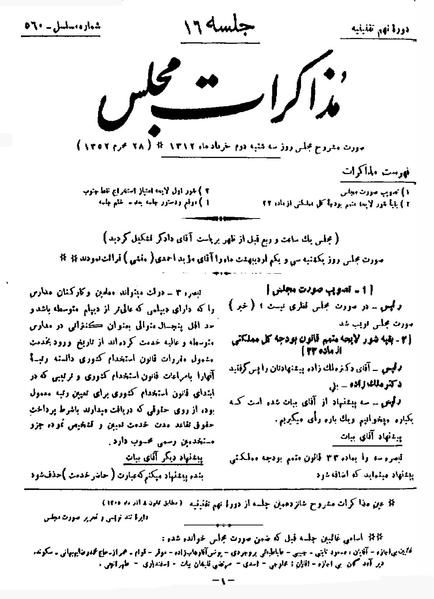 دورهٔ نهم تقنینیه
جلسه ۱۶
شماره مسلسل - ۵۶۰
مذاکرات مجلس
صورت مشروح مجلس روز سه شنبه دوم خرداد ماه ۱۳۱۲ * (۲۸ محرم ۱۳۵۲)
فهرست مذاکرات
۱) تصویب صورت مجلس
۲) بقیهٔ شور لایحه متمم بودجهٔ کل مملکتی از ماده ۲۳
۳) شور اول لایحه امتیاز استخراج نفط جنوب
۴) موقع و دستور جلسه بعد - ختم جلسه
(مجلس یک ساعت و ربع قبل از ظهر بریاست آقای دادگر تشکیل گردید)
صورت مجلس روز یکشنبه سی و یکم اردیبهشت ماه را آقای مؤید احمدی (منشی) قرائت نمودند **
[۱ - تصویب صورت مجلس]
رئیس - در صورت مجلس نظری نیست؟ (خیر)
صورت مجلس تصویب شد
[۲ - بقیه شور لایحه متمم قانون بودجه کل مملکتی
از ماده ۲۳]
رئیس - آقای دکتر ملک زاده پیشنهادتان را پس گرفتید
دکتر ملک زاده - بلی
رئیس - سه پیشنهاد از آقای بیات شده است که
یکباره میخوانیم و یک باره رأی میگیریم.
پیشنهاد آقای بیات
تبصره سه را بماده ۳۳ قانون متمم بودجه مملکتی
پیشنهاد مینماید که اضافه شود
تبصره ۳ - دولت میتواند معلمین و کارکنان مدارس
را که دارای دیپلمی که عالی تر از دیپلم متوسطه باشد و
حد اقل پنجسال متوالی بعنوان کنتراتی در مدارس
متوسطه و عالیه خدمت کرده‌اند از تاریخ ورود بخدمت
مشمول مقررات قانون استخدام کشوری دانسته رتبهٔ
آنها را با مراعات قانون استخدام کشوری و ترتیبی که در
ابتدای قانون استخدام کشوری برای تعیین رتبه معمول
بوده از روی حقوقی که دریافت میدارند باشرط پرداخت
حقوق تقاعد مدت خدمت تعیین و تشخیص نموده جزو
مستخدمین رسمی محسوب دارد.
پیشنهاد دیگر آقای بیات
بنده پیشنهاد میکنم که عبارت (حاضر خدمت) حذف شود
* عین مذاکرات مشروح شانزدهمین جلسه از دورهٔ نهم تقنینیه (مطابق قانون ۸ آذر ماه ۱۳۰۵)
دایرهٔ تند نویسی و تحریر صورت مجلس
** اسامی غائبین جلسه قبل که ضمن صورت مجلس خوانده شده:
- ۱ -